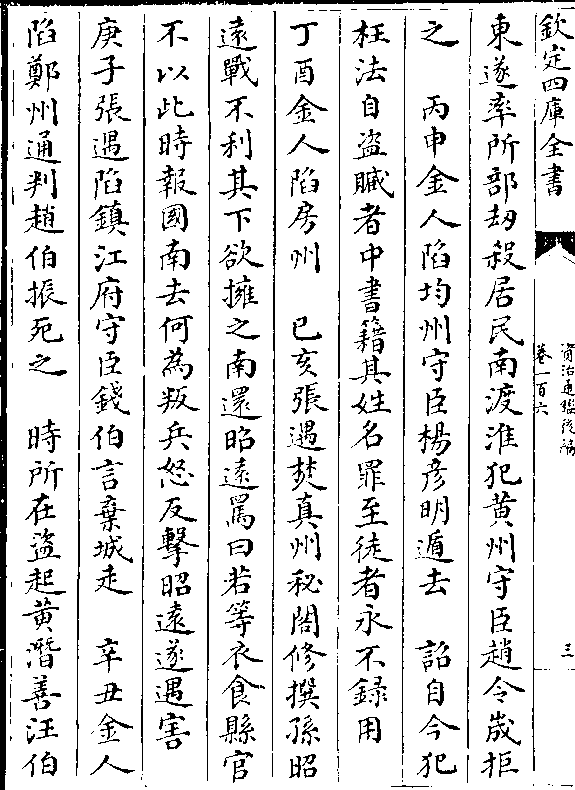 欽定四庫全書
資治通鑑後編
卷一百六
三
東遂率所部劫殺居民南渡淮犯黃州守臣趙令峸拒
之　丙申金人陷均州守臣楊彦明遁去　詔自今犯
枉法自盗贓者中書籍其姓名罪至徒者永不録用
丁酉金人陷房州　已亥張遇焚真州秘閣修撰孫昭
遠戰不利其下欲擁之南還昭遠罵曰若等衣食縣官
不以此時報國南去何為叛兵怒反擊昭遠遂遇害
庚子張遇陷鎮江府守臣錢伯言棄城走　辛丑金人
陷鄭州通判趙伯振死之　時所在盗起黄潛善汪伯